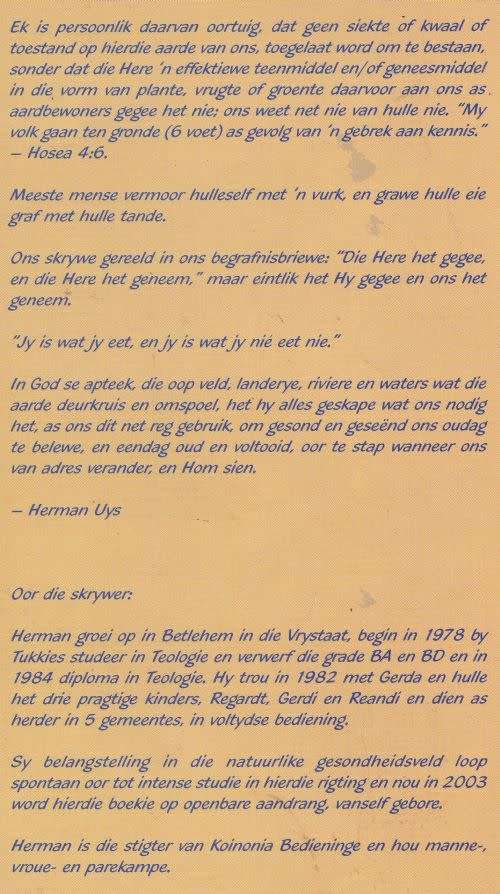 Ek is persoonlik daarvan oortuig, dat geen siekte of kwaal of
toestand op hierdie aarde van ons, toegelaat word om te bestaan,
sonder dat die Here 'n effektiewe teenmiddel en/of geneesmiddel
in die vorm van plante, vrugte of groente daarvoor aan ons as
aardbewoners gegee het nie; ons weet net nie van hulle nie. "My
volk gaan ten gronde (6 voet) as gevolg van 'n gebrek aan kennis."
– Hosea 4:6.
Meeste mense vermoor hulleself met 'n vurk, en grawe hulle eie
graf met hulle tande.
Ons skrywe gereeld in ons begrafnisbriewe: "Die Here het gegee,
en die Here het geneem," maar eintlik het Hy gegee en ons het
geneem.
"Jy is wat jy eet, en jy is wat jy nié eet nie."
In God se apteek, die oop veld, landerye, riviere en waters wat die
aarde deurkruis en omspoel, het hy alles geskape wat ons nodig
het, as ons dit net reg gebruik, om gesond en geseënd ons oudag
te belewe, en eendag oud en voltooid, oor te stap wanneer ons
van adres verander, en Hom sien.
– Herman Uys
Oor die skrywer:
Herman groei op in Betlehem in die Vrystaat, begin in 1978 by
Tukkies studeer in Teologie en verwerf die grade BA en BD en in
1984 diploma in Teologie. Hy trou in 1982 met Gerda en hulle
het drie pragtige kinders, Regardt, Gerdi en Reandi en dien as
herder in 5 gemeentes, in voltydse bediening.
Sy belangstelling in die natuurlike gesondheidsveld loop
spontaan oor tot intense studie in hierdie rigting en nou in 2003
word hierdie boekie op openbare aandrang, vanself gebore.
Herman is die stigter van Koinonia Bedieninge en hou manne-,
vroue- en parekampe.